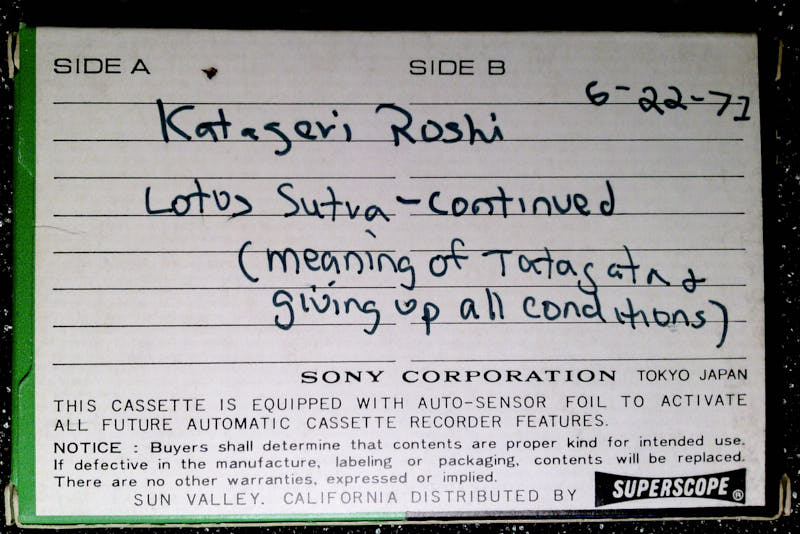 SIDE A SIDE B
6-22-71
Katageri Roshi
Lotus Sutra - continued
(meaning of Tatagata &
giving up all conditions)
SONY CORPORATION TOKYO JAPAN
THIS CASSETTE IS EQUIPPED WITH AUTO-SENSOR FOIL TO ACTIVATE
ALL FUTURE AUTOMATIC CASSETTE RECORDER FEATURES.
NOTICE : Buyers shall determine that contents are proper kind for intended use.
If defective in the manufacture, labeling or packaging, contents will be replaced.
There are no other warranties, expressed or implied.
SUN VALLEY. CALIFORNIA DISTRIBUTED BY SUPERSCOPE®